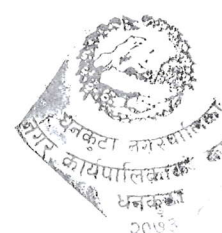 धनकुटा नगरपालिका
नगर कार्यपालिकाको
धनकुटा
२०७३